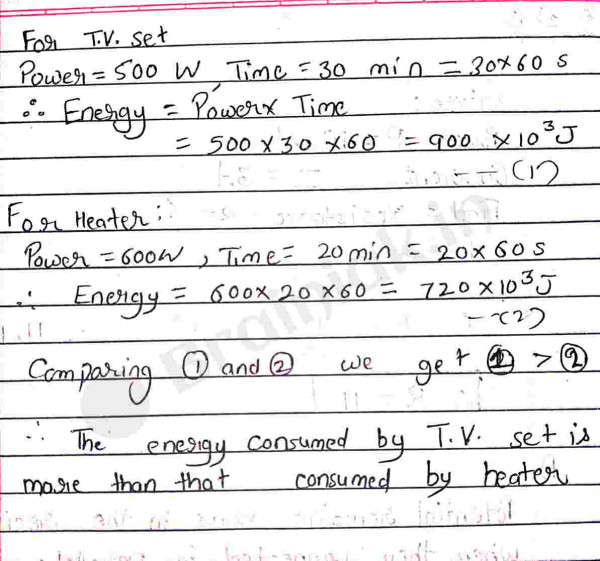 For T.V. set
Power = 500 W, Time = 30 min = 30×60 s
∴ Energy = Power × Time
= 500 × 30 × 60 = 900 × 10³ J
-- (1)
For Heater:
Power = 600W, Time = 20 min = 20 × 60 s
∴ Energy = 600 × 20 × 60 = 720 × 10³ J
-- (2)
Comparing ① and ② we get ① > ②
∴ The energy consumed by T.V. set is
more than that consumed by heater